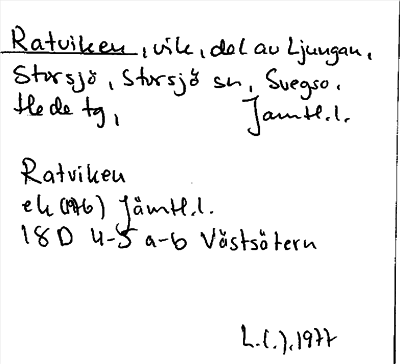 Ratviken, vik, del av Ljungan,
Storsjö, Storsjö sn, Svegs o.
Hede tg, Jämtl.l.
Ratviken
ek (1976) Jämtl.l.
18D 4-5 a-b Västsätern
L.(.), 1977